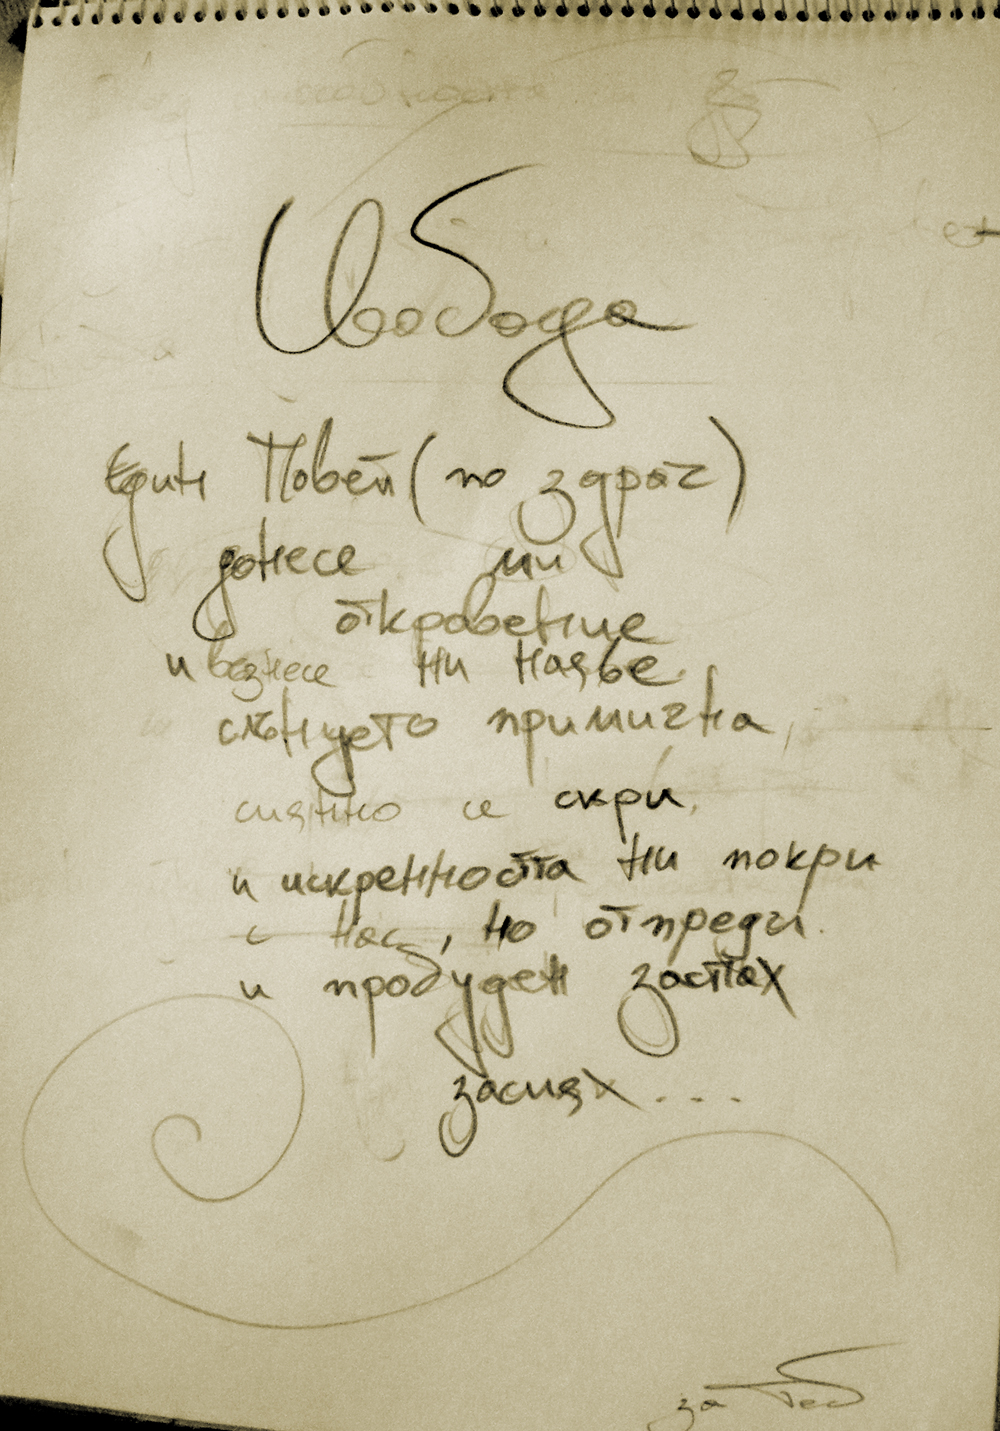 Свобода
Един Повей (по здрач)
донесе ми
откровение
и вознесе ни наяве.
слънцето примигна,
сиянно се скри,
и искренността ни покри
с нас, но отпреди.
и пробуден заспах
засиях...
за теб